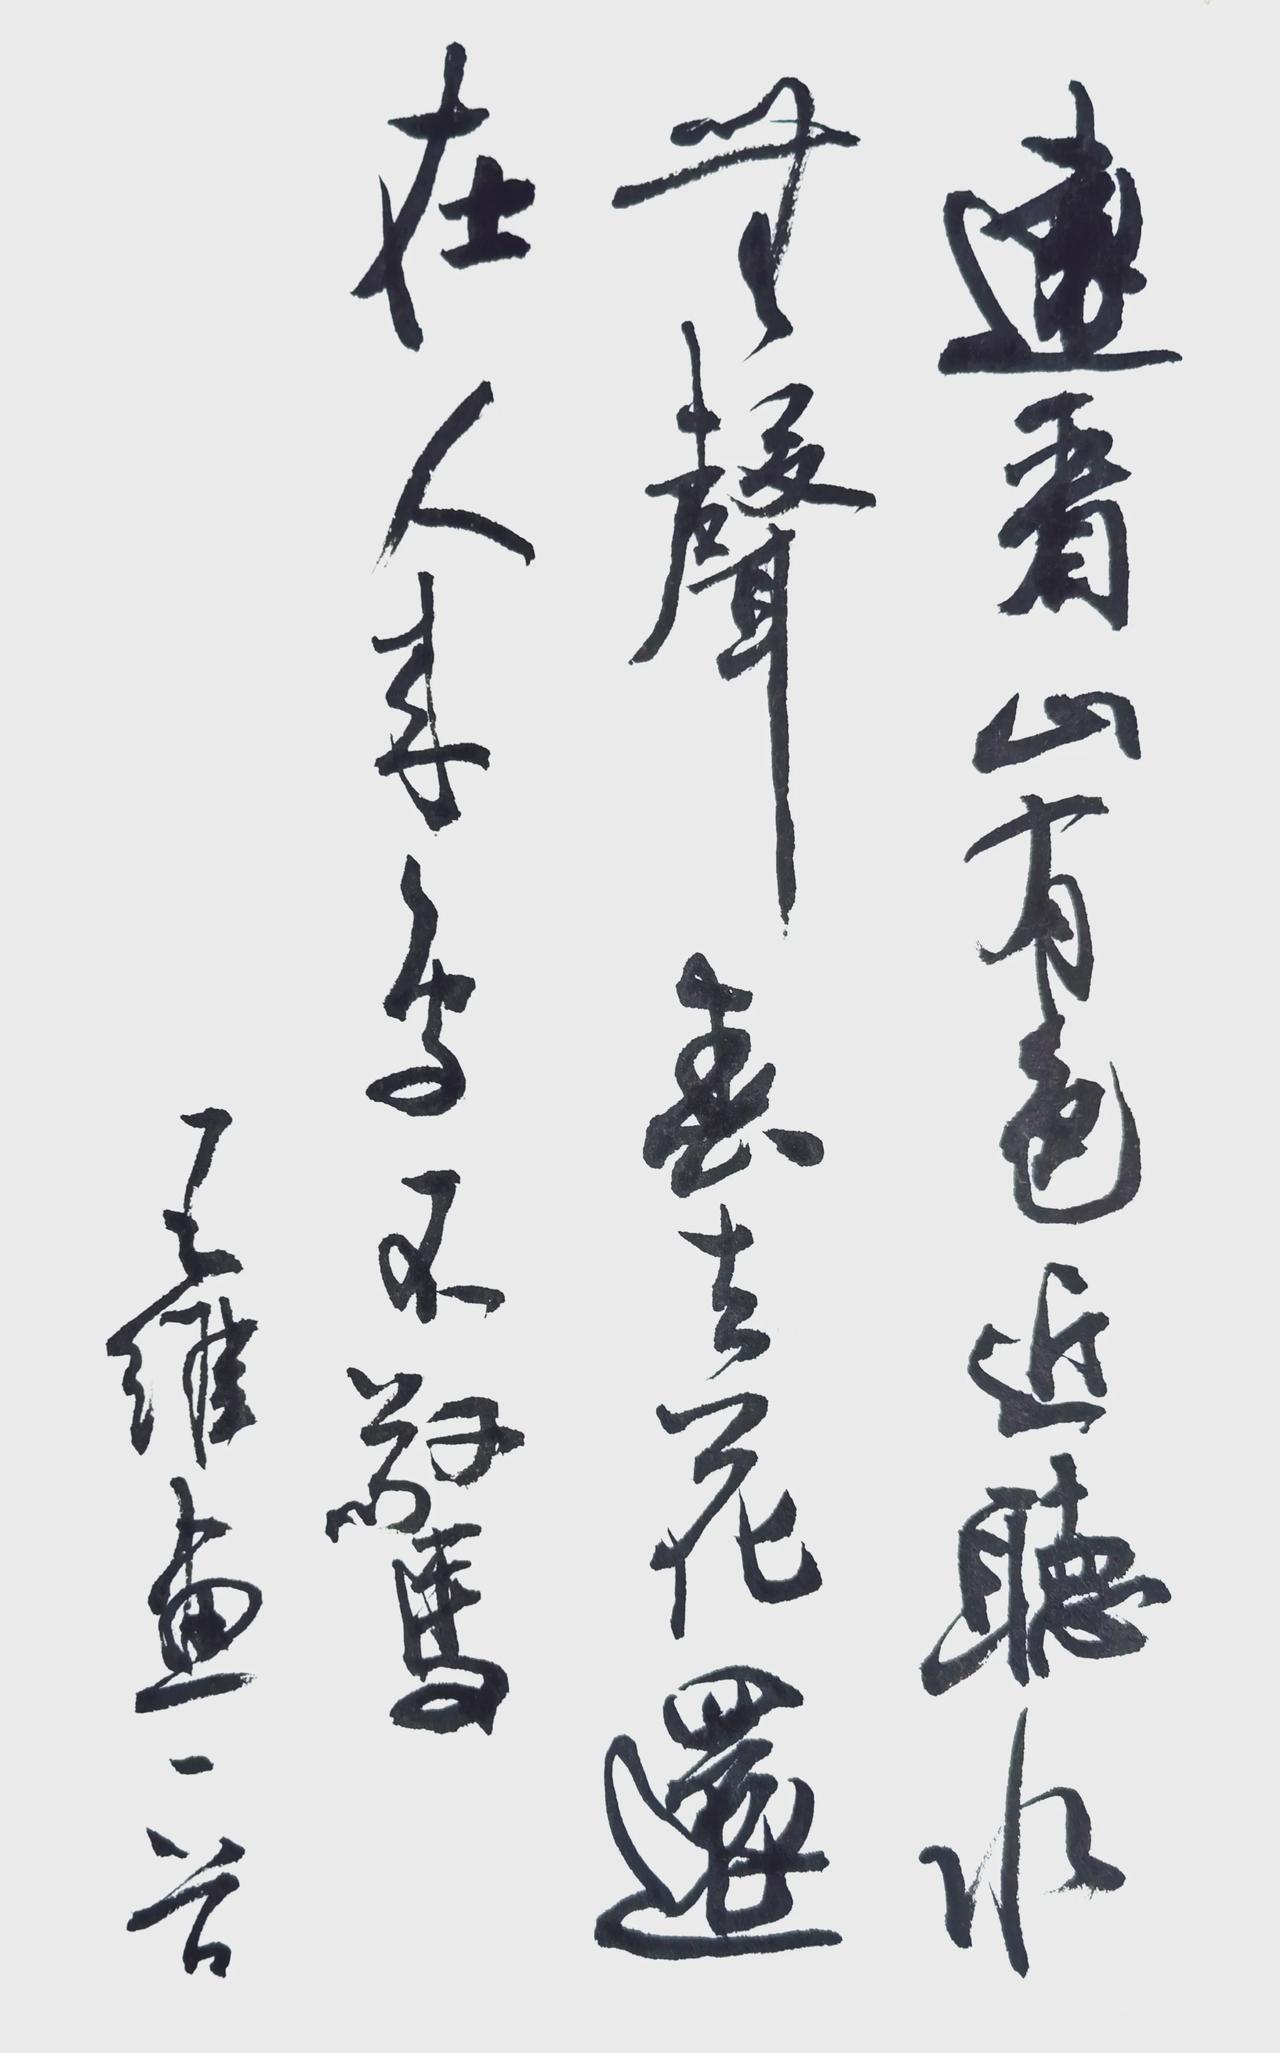 遠看山有色近聽水
無聲春去花還
在人来鳥不驚
王維畫一首